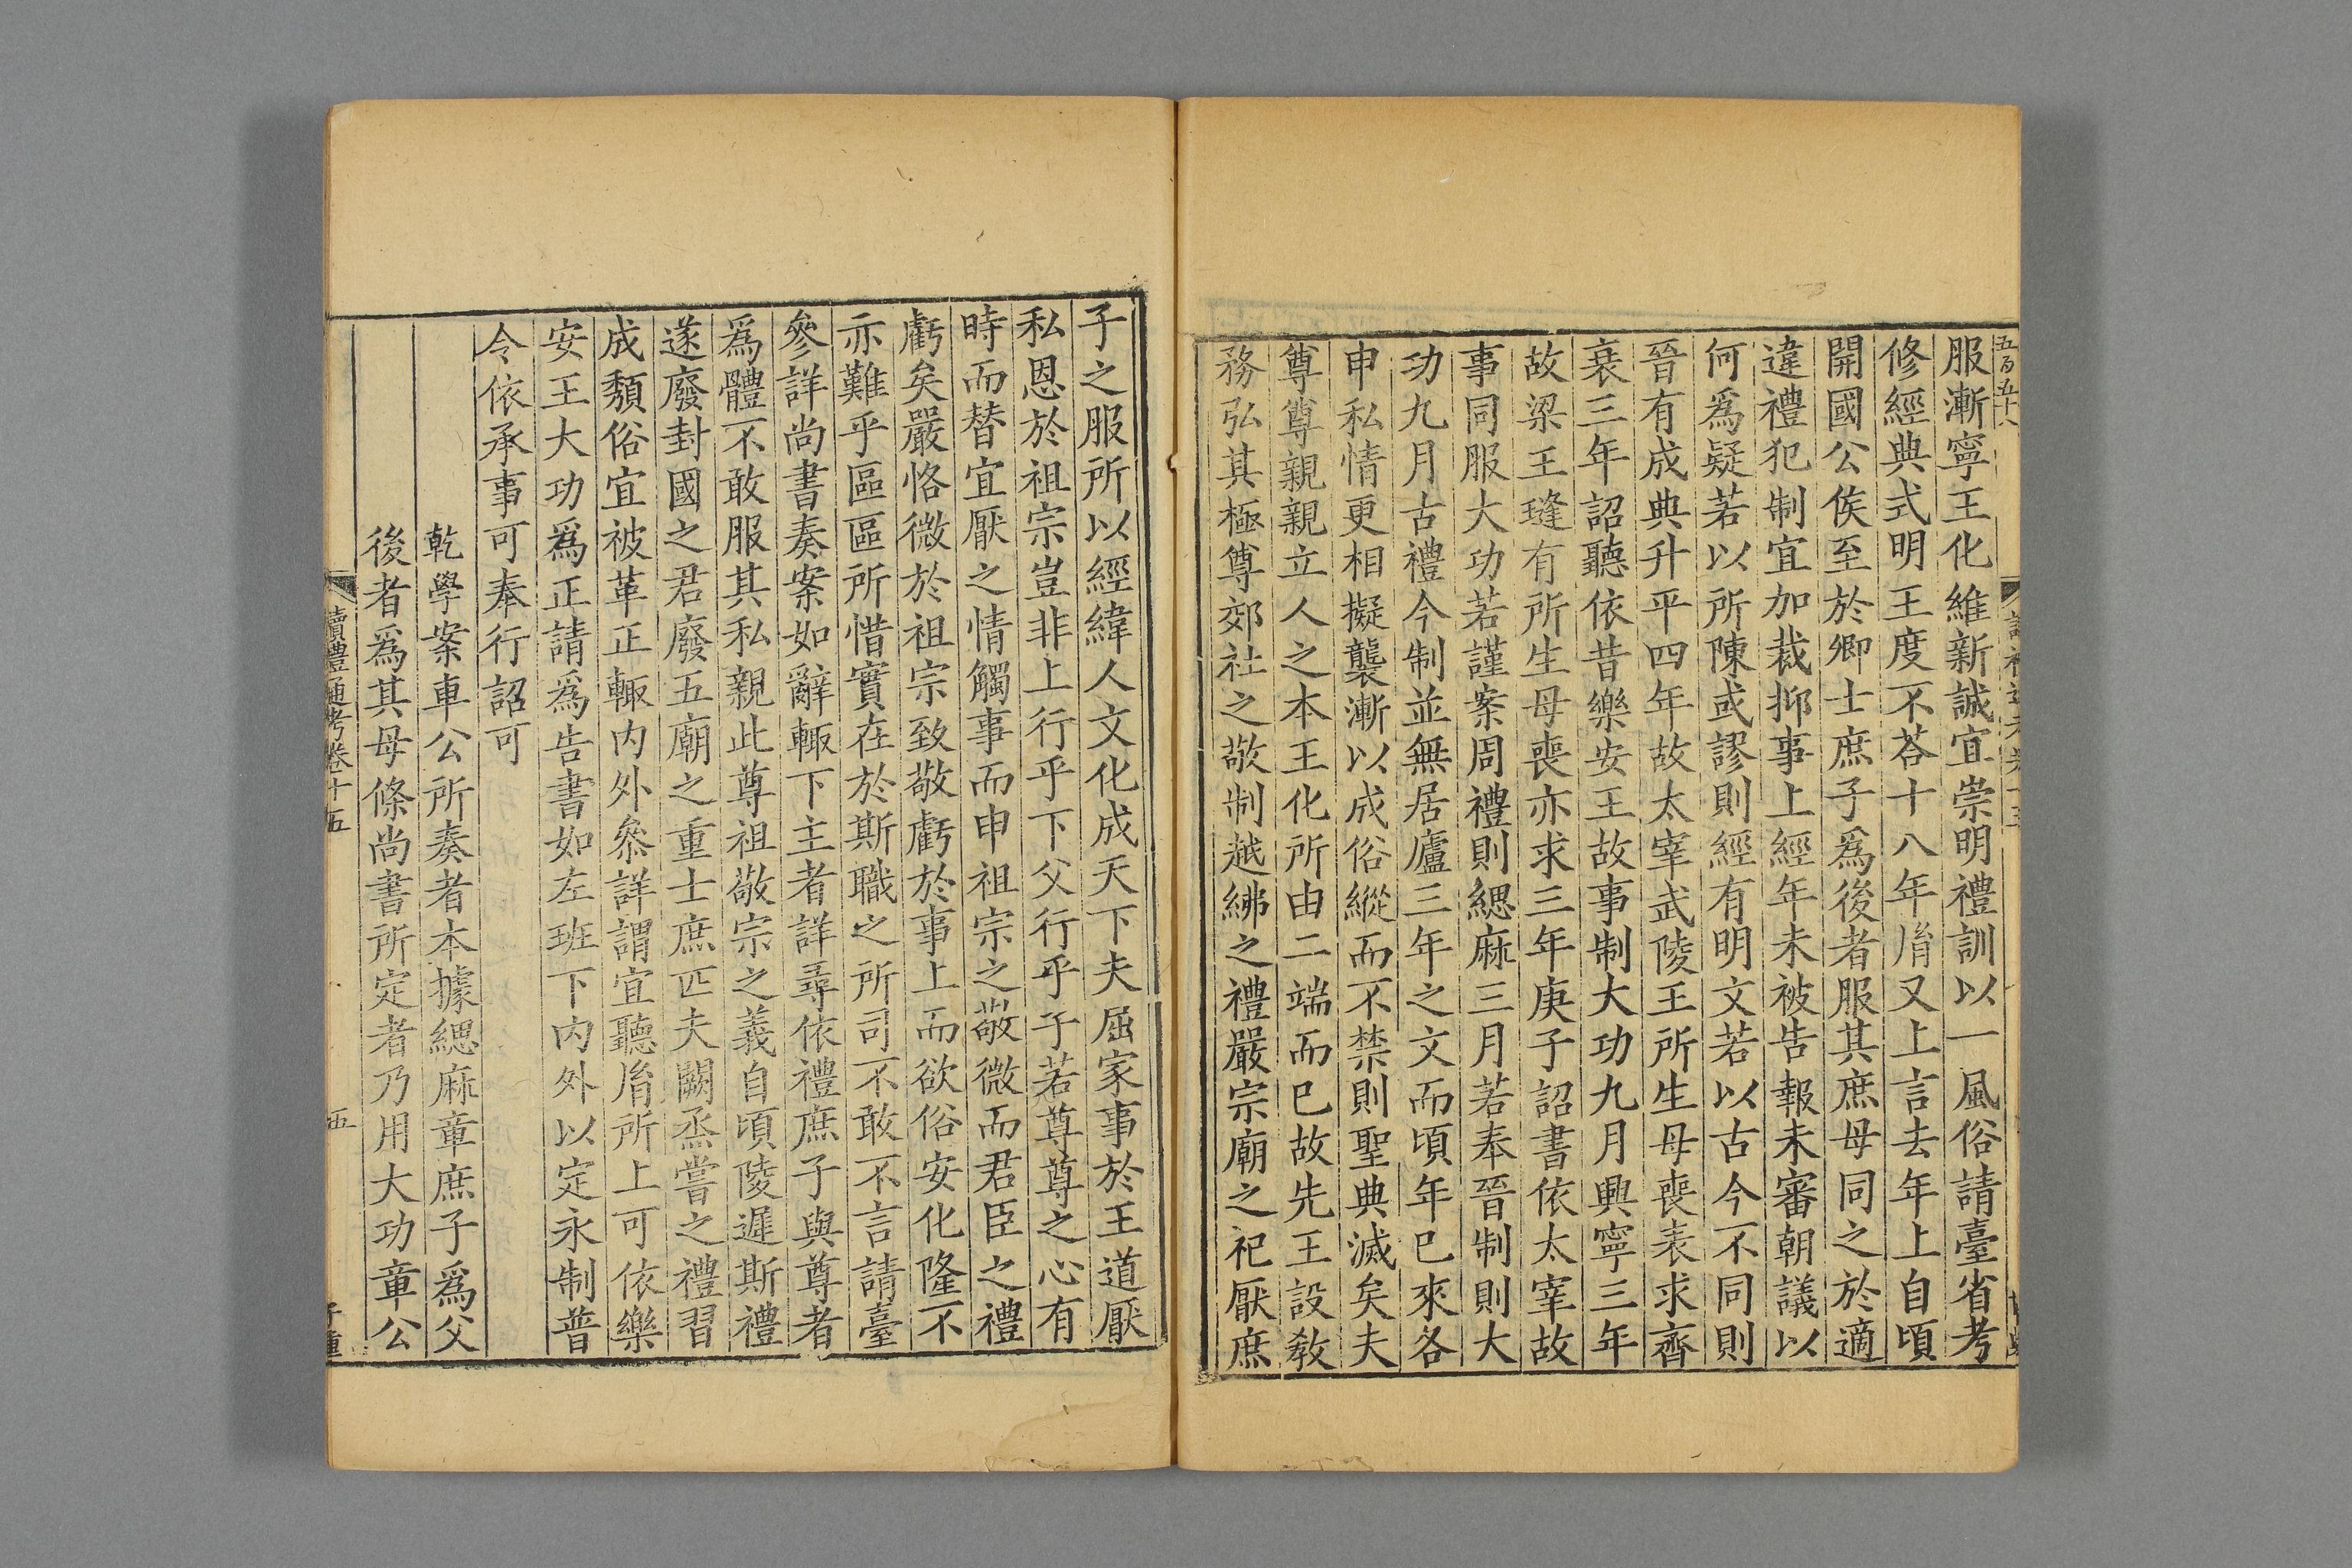 五百五十八
服漸寧王化維新誠宜崇明禮訓以一風俗請臺省考
修經典式明王度不荅十八年脩又上言去年上自頃
開國公侯至於卿士庶子爲後者服其庶母同之於適
違禮犯制宜加裁抑事上經年未被告報未審朝議以
何爲疑若以所陳或謬則經有明文若以古今不同則
晉有成典升平四年故太宰武陵王所生母喪表求齊
衰三年詔聽依昔樂安王故事制大功九月興寧三年
故梁王㻴有所生母喪亦求三年庚子詔書依太宰故
事同服大功若謹案周禮則緦麻三月若奉晉制則大
功九月古禮今制並無居廬三年之文而頃年已來各
申私情更相擬襲漸以成俗縱而不禁則聖典滅矣夫
尊尊親親立人之本王化所由二端而已故先王設敎
務弘其極尊郊社之敬制越紼之禮嚴宗廟之祀厭庶
子之服所以經緯人文化成天下夫屈家事於王道厭
私恩於祖宗豈非上行乎下父行乎子若尊尊之心有
時而替宜厭之情觸事而申祖宗之敬微而君臣之禮
虧矣嚴恪微於祖宗致敬虧於事上而欲俗安化隆不
亦難乎區區所惜實在於斯職之所司不敢不言請臺
參詳尚書奏案如辭輙下主者詳尋依禮庶子與尊者
爲體不敢服其私親此尊祖敬宗之義自頃陵遲斯禮
遂廢封國之君廢五廟之重士庶匹夫闕烝嘗之禮習
成頹俗宜被革正輙內外參詳謂宜聽脩所上可依樂
安王大功爲正請爲告書如左班下內外以定永制普
令依承事可奉行詔可
乾學案車公所奏者本據緦麻章庶子爲父
後者爲其母條尚書所定者乃用大功章公
讀禮通考卷十五
五